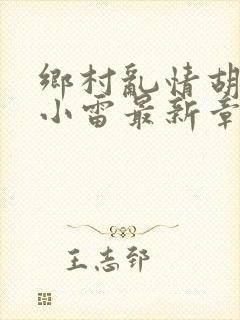 鄉村亂情胡
小雷最新章
王志郅